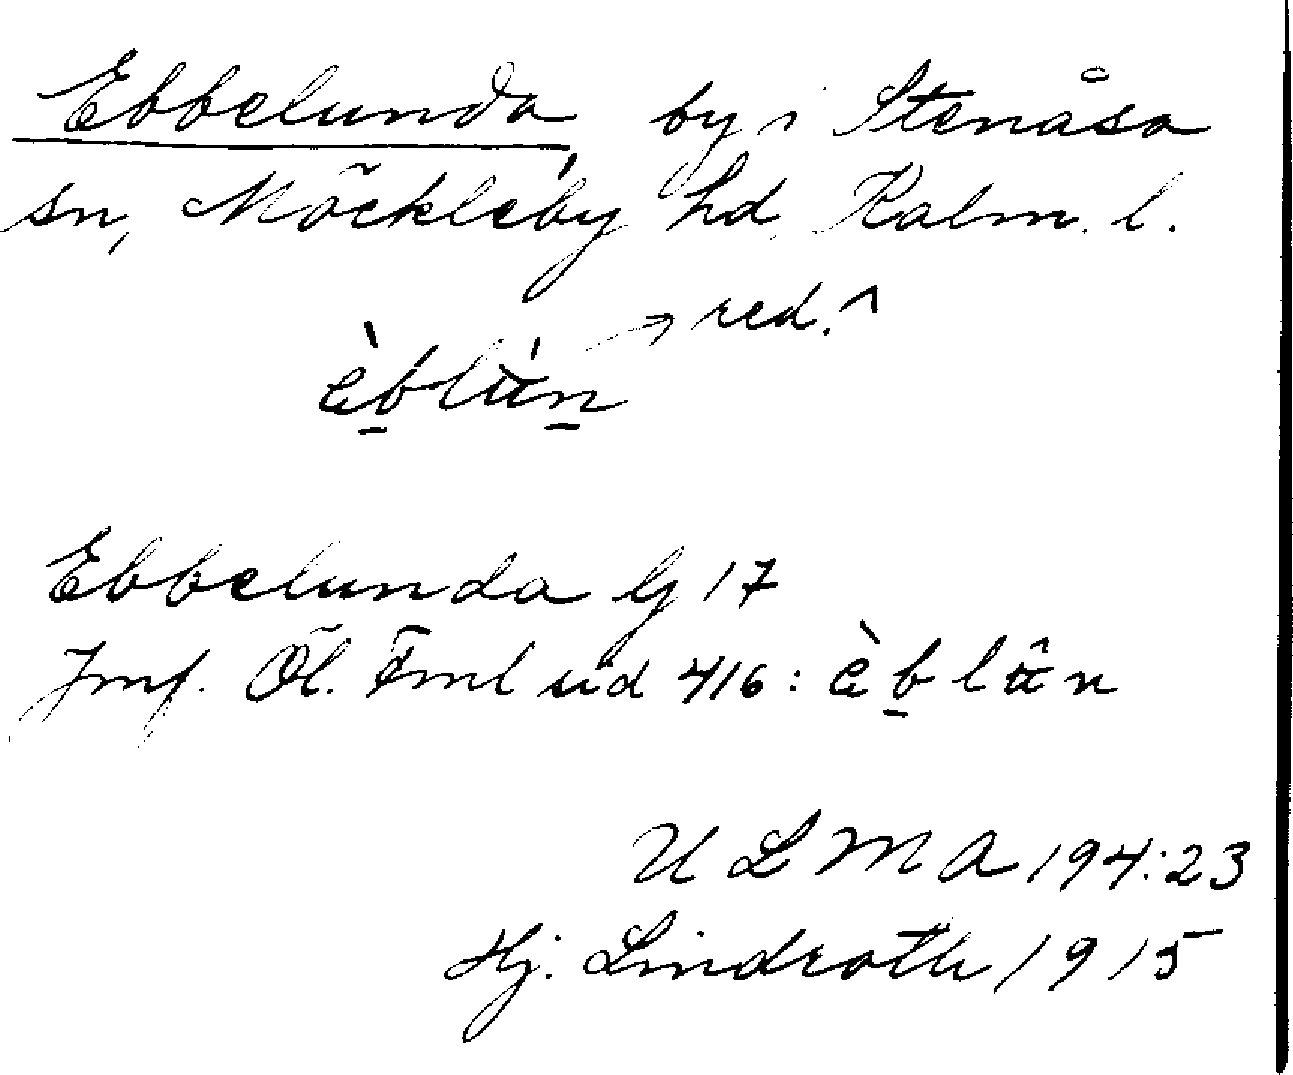 Ebbelunda by i Stenåsa
sn, Möckleby hd, Kalm. l.
red. ^
èb̲lùn̲
Ebbelunda Gj 17
Jmf. Öl. Fml ud 416: èb̲lûn
ULMA 194:23
Hj. Lindroth 1915